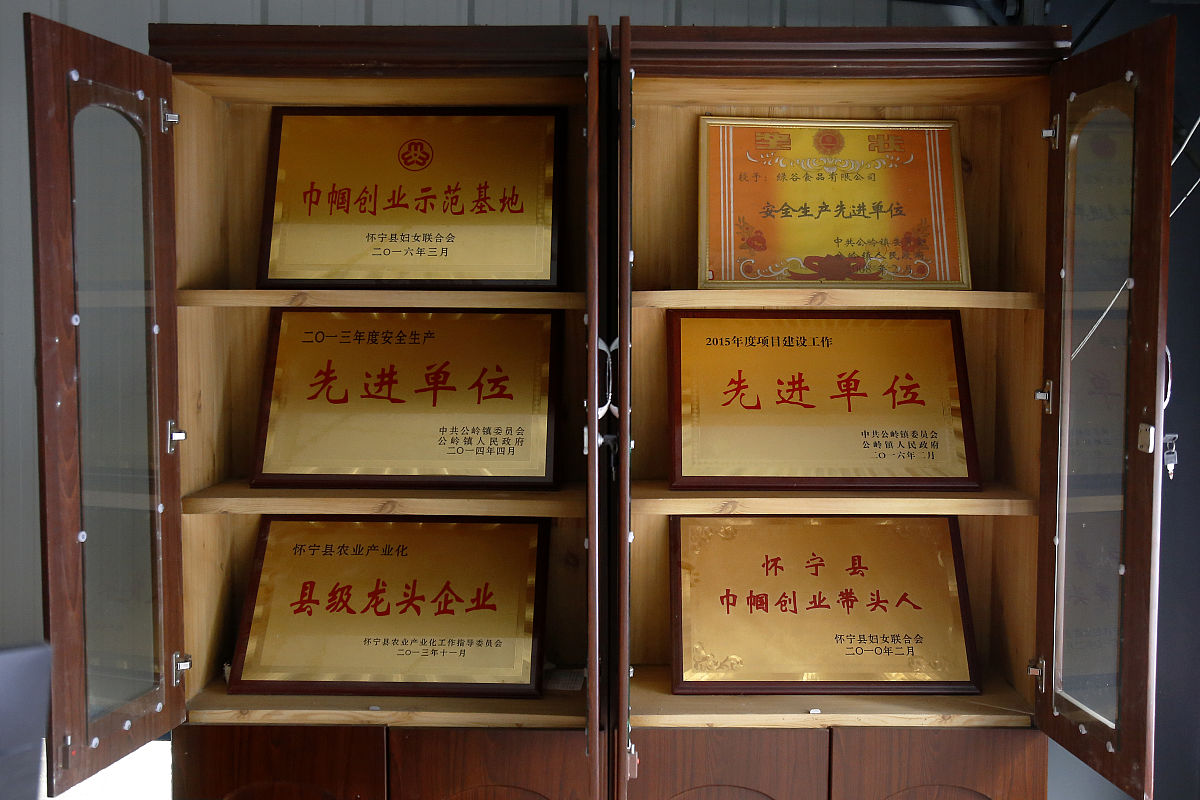 巾帼创业示范基地
怀宁县妇女联合会
二〇一六年三月
奖状
授予：绿谷食品有限公司
安全生产先进单位
中共公岭镇委
公岭镇人民政府
二〇一三年度安全生产
先进单位
中共公岭镇委员会
公岭镇人民政府
二〇一四年四月
2015年度项目建设工作
先进单位
中共公岭镇委员会
公岭镇人民政府
二〇一六年二月
怀宁县农业产业化
县级龙头企业
怀宁县农业产业化工作指导委员会
二〇一三年十一月
怀宁县
巾帼创业带头人
怀宁县妇女联合会
二〇一〇年二月